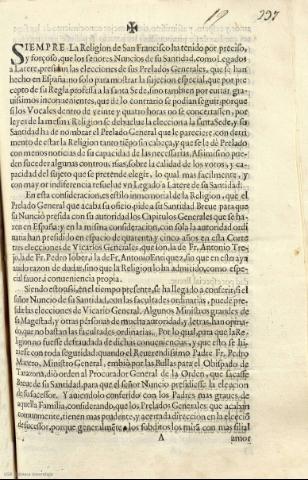 237
SIEMPRE La Religion de San Francisco ha tenido por preciso,
y forçoso, que los señores Nuncios de su Santidad, como Legados
à Latere, presidan las elecciones de sus Prelados Generales, que se han
hecho en España: no solo para mostrar la sujecion especial, que por pre-
cepto de su Regla professa a la santa Sede, sino tambien por euitar gra-
uissimos inconuenientes, que de lo contrario se podian seguir, porque
si los Vocales dentro de veinte y quatro horas no se concertassen, por
leyes de la mesma Religion se debuelue la eleccion a la santa Sede, y su
Santidad ha de nombrar el Prelado General que le pareciere, con detri-
mento de estar la Religion tanto tiẽpo sin cabeça, y que se le dè Prelado
con menos noticias de su capacidad de las necessarias. Assimismo pue-
den suceder algunas controuersias, sobre la calidad de los votos, y ca-
pacidad del sujeto que se pretende elegir, lo qual mas facilmente, y
con mayor indiferencia resuelue vn Legado à Latere de su Santidad.
En esta consideracion, es estilo inmemorial de la Religion, que el
Prelado General que acaba su oficio pide a su Santidad Breue para que
su Nuncio presida con su autoridad los Capitulos Generales que se ha-
zen en España: y en la misma consideracion, con sola la autoridad ordi-
naria han presidido en espacio de quarenta y cinco años en esta Corte
tres elecciones de Vicarios Generales, que son, la de Fr. Antonio Tre-
jo, la de Fr. Pedro Iober, i la de Fr. Antonio Enriquez, sin que en esto aya
auido razon de dudar, sino que la Religion lo ha admitido, como espe-
cial fauor à conueniencia propia.
Siendo esto assi, en el tiempo presente, se ha llegado a conferir, si el
señor Nuncio de su Santidad, con las facultades ordinarias, puede pre-
sidir las elecciones de Vicario General. Algunos Ministros grandes de
su Magestad, y otras personas de mucha autoridad, y letras, han opina-
do, que no bastan las facultades ordinarias. Por lo qual, para que la Re-
ligion no fuesse defraudada de dichas conueniencias, y que esto se hi-
ziesse con toda seguridad, quando el Reuerendissimo Padre Fr. Pedro
Manero, Ministro General, embiò por las Bullas para el Obispado de
Tarazona, diò orden al Procurador General de la Orden, que sacasse
Breue de su Santidad, para que el señor Nuncio presidiesse la eleccion
de su sucessor. Y auiendolo conferido con los Padres mas graues de
aquella Familia, considerando, que los Prelados Generales que acaban
comunmente, tienen mas prudente, y acertada direccion en la eleccio
de sucessor, porque generalmẽte los subditos los mirã con mas filial
A
amor